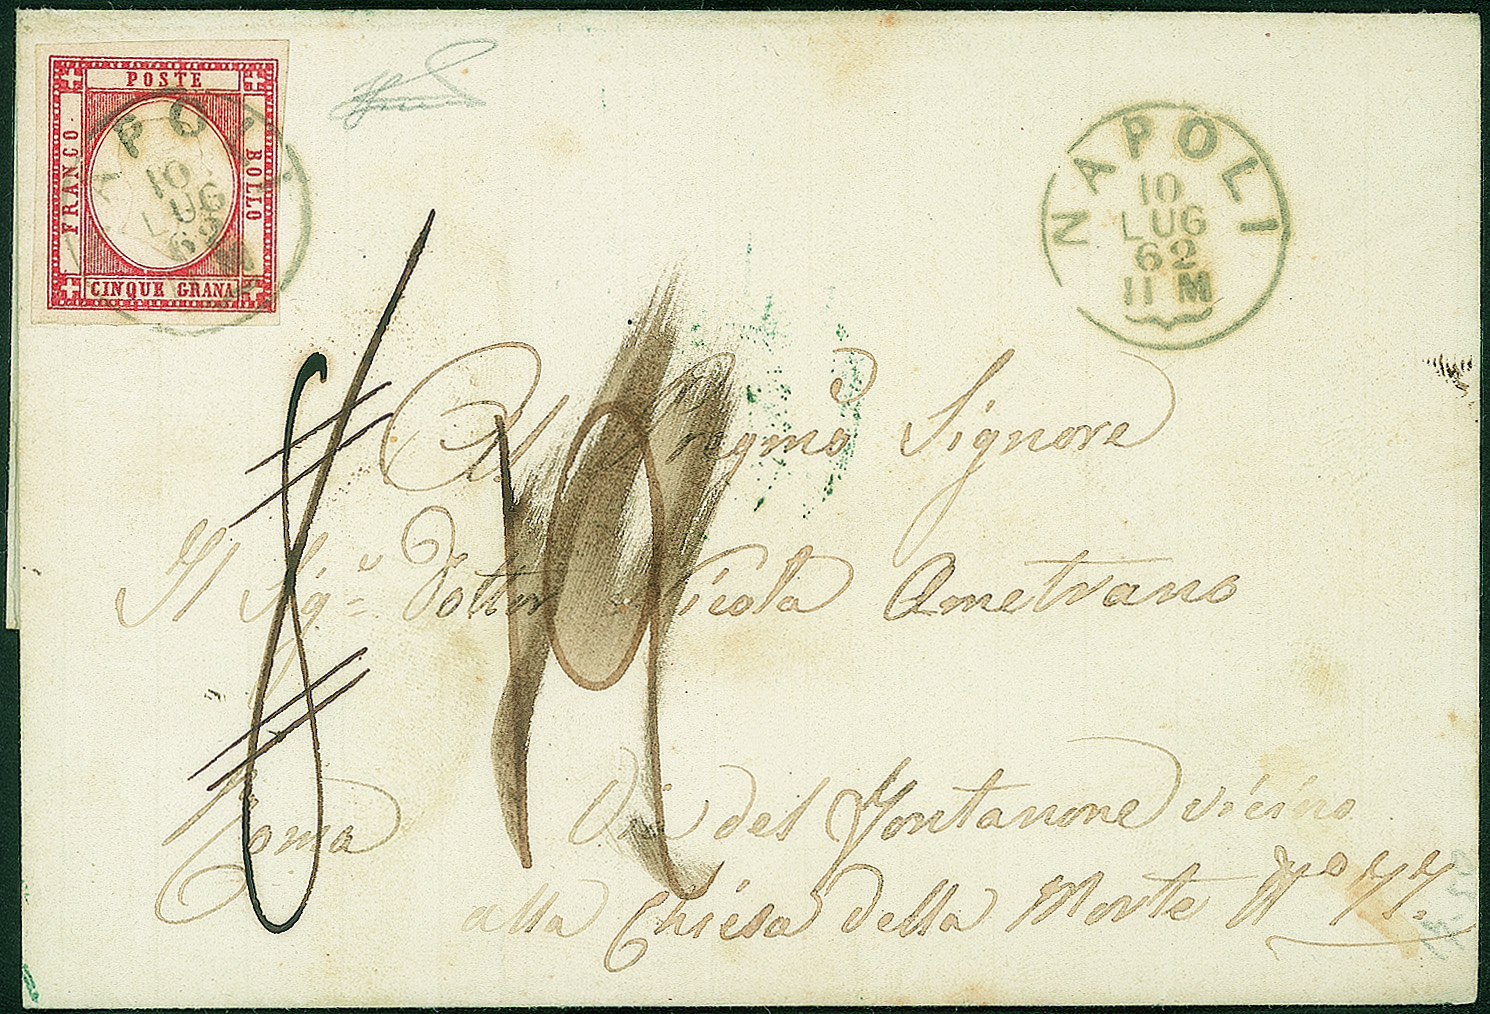 POSTE
FRANCO
BOLLO
CINQUE GRANA
NAPOLI
10
LUG
62
NAPOLI
10
LUG
62
11 M
8
19
All' Signore
Il Sig.r Dottor Nicola Ametrano
Roma Via del Fontanone vicino
alla Chiesa della Morte N.o 77.